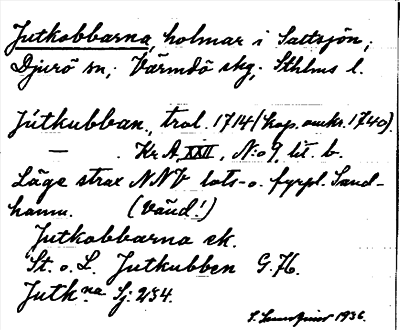 Jutkobbarna, holmar i Saltsjön,
Djurö sn, Värmdö skg, Sthlms l.
Jútkubban, trol. 1714 (kop. omkr. 1740).
— . Kr. A. XXII, N:o 9, lit. b.
Läge strax NNV lots- o. fyrpl. Sand-
hamn. (Vänd!)
Jutkobbarna ek.
St. o. L. Jutkubben G. 76.
Jutkna Sj: 254.
1936.